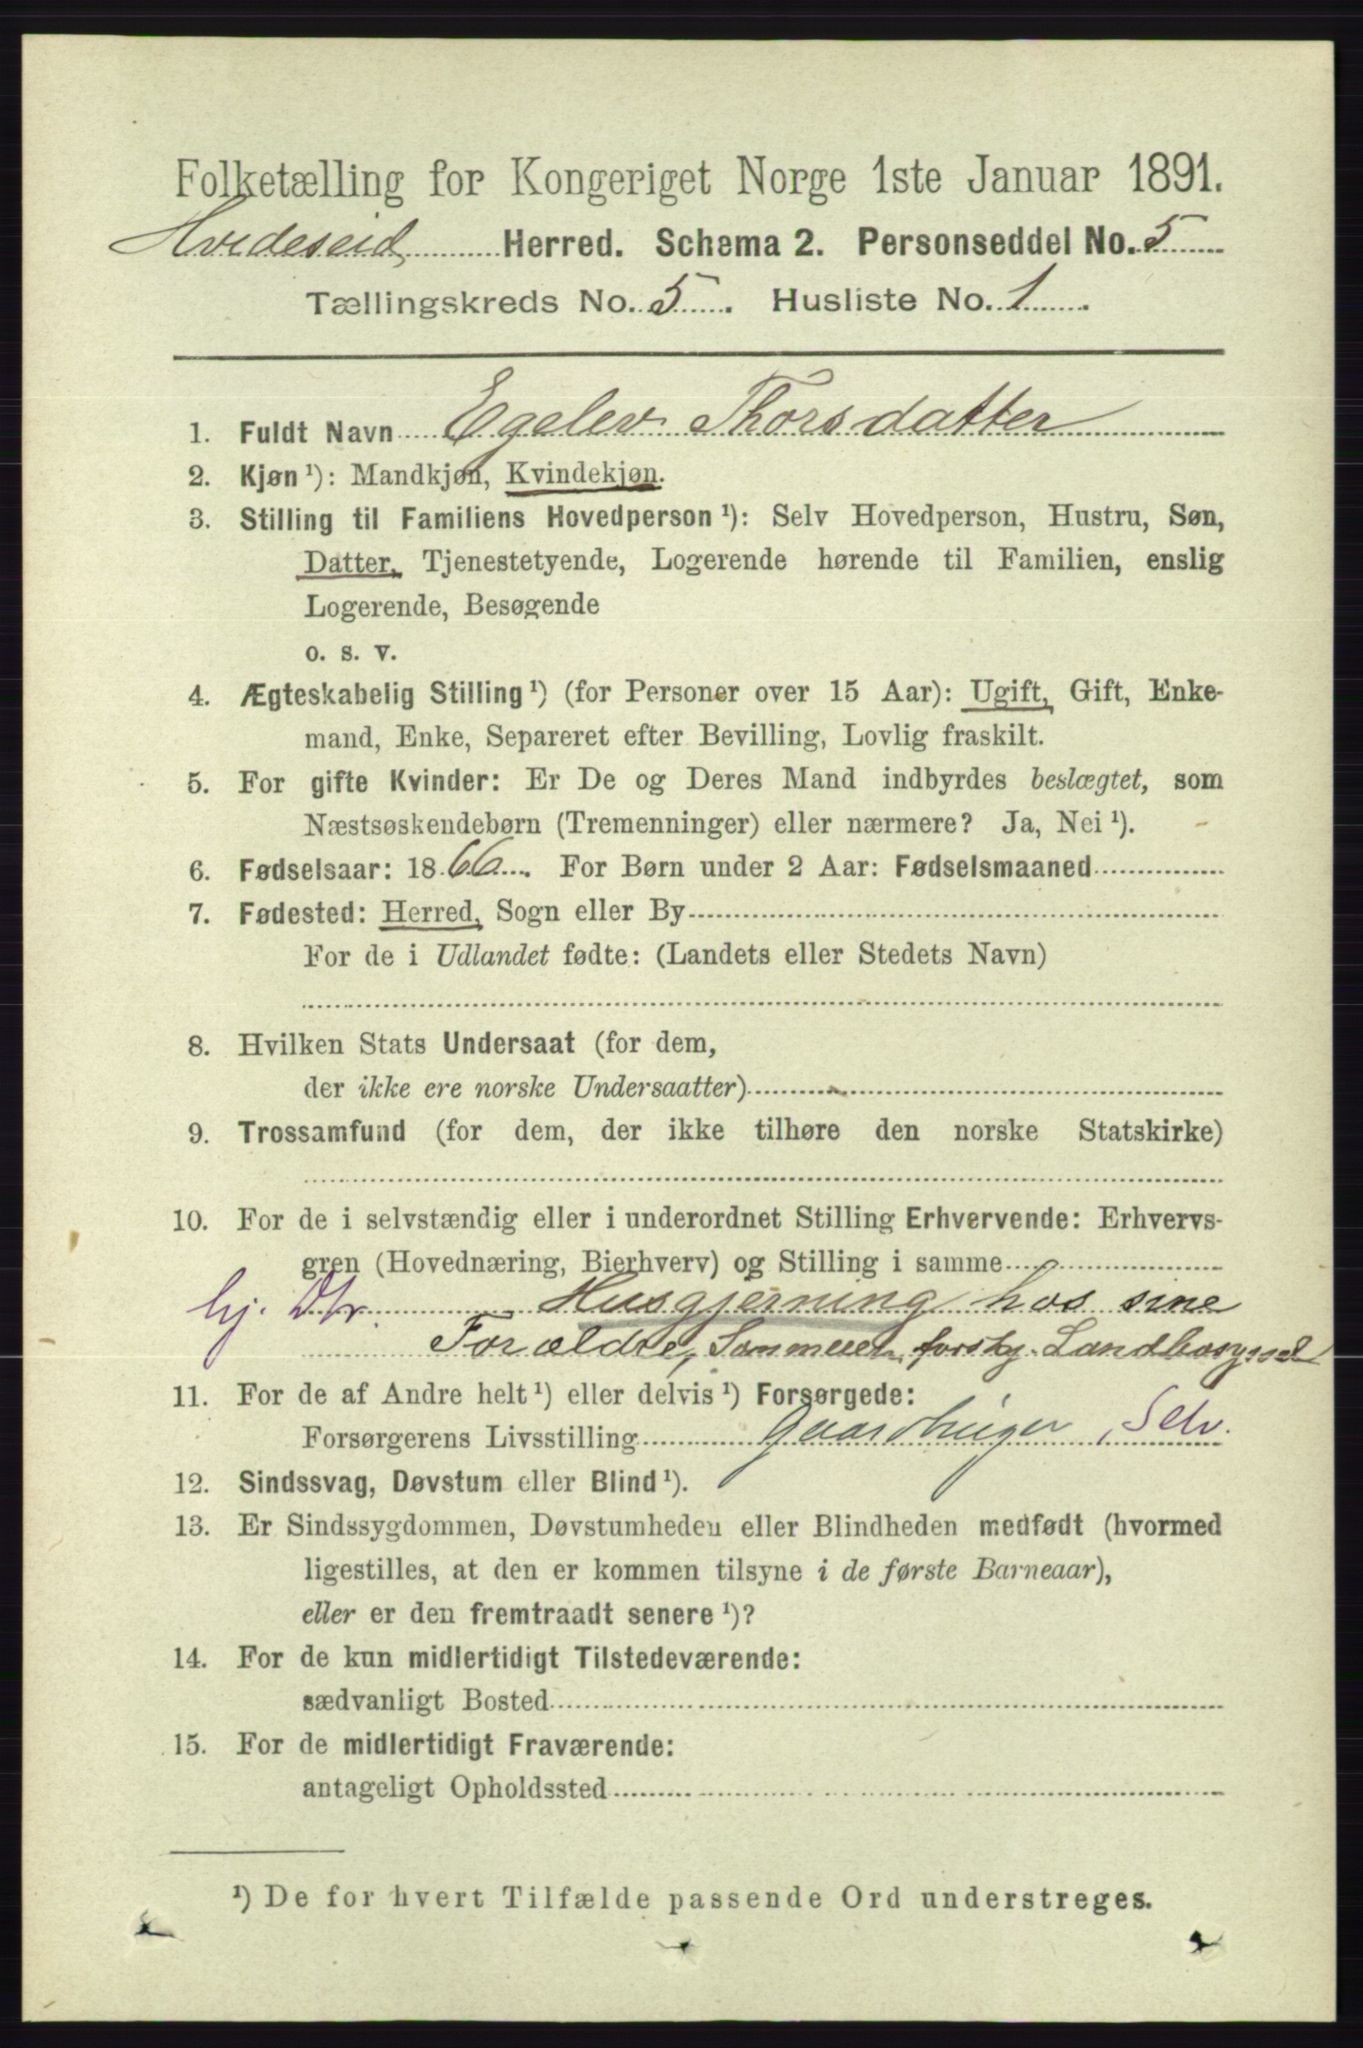 Folketælling for Kongeriget Norge 1ste Januar 1891.
Hvideseid Herred. Schema 2. Personseddel No. 5
Tællingskreds No. 5. Husliste No. 1.
1. Fuldt Navn Egelev Thorsdatter
2. Kjøn ¹): Mandkjøn, Kvindekjøn.
3. Stilling til Familiens Hovedperson ¹): Selv Hovedperson, Hustru, Søn,
Datter, Tjenestetyende, Logerende hørende til Familien, enslig
Logerende, Besøgende
o. s. v.
4. Ægteskabelig Stilling ¹) (for Personer over 15 Aar): Ugift, Gift, Enke-
mand, Enke, Separeret efter Bevilling, Lovlig fraskilt.
5. For gifte Kvinder: Er De og Deres Mand indbyrdes beslægtet, som
Næstsøskendebørn (Tremenninger) eller nærmere? Ja, Nei ¹).
6. Fødselsaar: 1866. For Børn under 2 Aar: Fødselsmaaned
7. Fødested: Herred, Sogn eller By
For de i Udlandet fødte: (Landets eller Stedets Navn)
8. Hvilken Stats Undersaat (for dem,
der ikke ere norske Undersaatter)
9. Trossamfund (for dem, der ikke tilhøre den norske Statskirke)
10. For de i selvstændig eller i underordnet Stilling Erhvervende: Erhvervs-
gren (Hovednæring, Bierhverv) og Stilling i samme
hj. Dtr. Husgjerning hos sine
Forældre, Sommeren forskj.
11. For de af Andre helt ¹) eller delvis ¹) Forsørgede:
Forsørgerens Livsstilling Gaardbruger, Selv.
12. Sindssvag, Døvstum eller Blind ¹).
13. Er Sindssygdommen, Døvstumheden eller Blindheden medfødt (hvormed
ligestilles, at den er kommen tilsyne i de første Barneaar),
eller er den fremtraadt senere ¹)?
14. For de kun midlertidigt Tilstedeværende:
sædvanligt Bosted
15. For de midlertidigt Fraværende:
antageligt Opholdssted
¹) De for hvert Tilfælde passende Ord understreges.